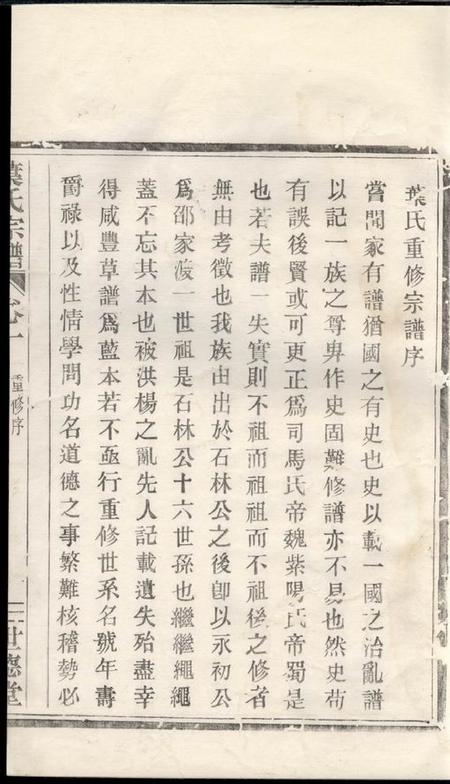 葉氏重修宗譜序
嘗聞家有譜猶國之有史也史以載一國之治亂譜
以記一族之尊卑作史固難修譜亦不易也然史苟
有誤後賢或可更正為司馬氏帝魏紫陽氏帝蜀是
也若夫譜一失實則不祖而祖祖而不祖後之修者
無由考徵也我族由出於石林公之後卽以永初公
為邵家渡一世祖是石林公十六世孫也繼繼繩繩
蓋不忘其本也被洪楊之亂先人記載遺失殆盡幸
得咸豐草譜為藍本若不亟行重修世系名號年壽
爵祿以及性情學問功名道德之事繁難核稽勢必
葉氏宗譜
卷一
重修序
一
世德堂